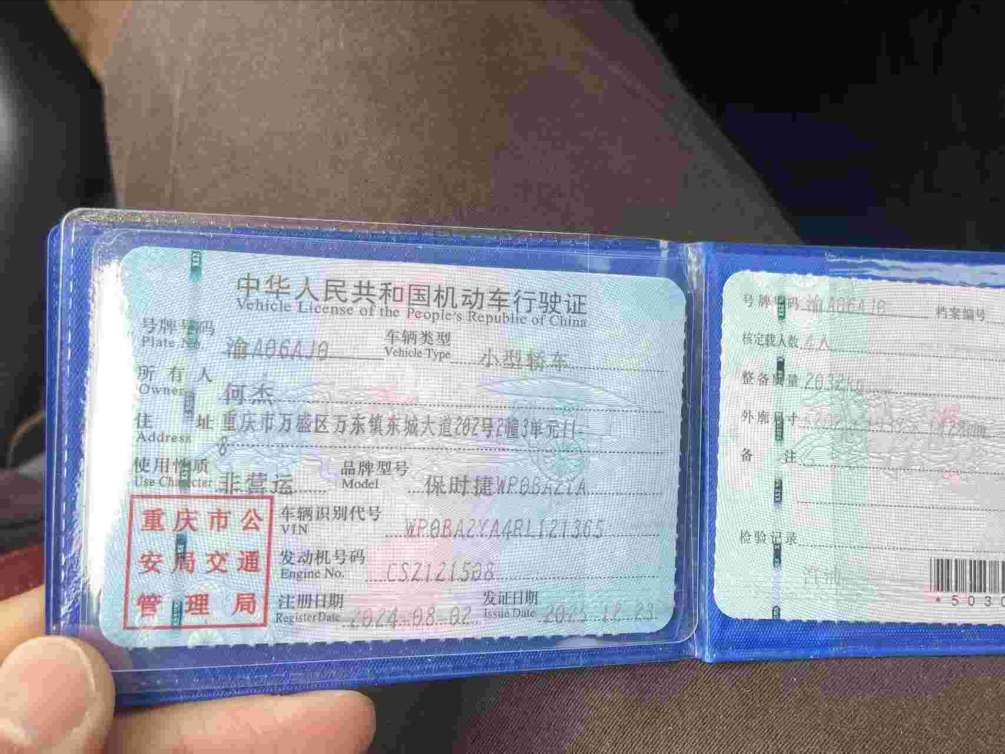 中华人民共和国机动车行驶证
Vehicle License of the People's Republic of China
号牌号码 渝A06AJ0 车辆类型 小型轿车
Plate No. Vehicle Type
所有人 何杰
Owner
住址 重庆市万盛区万东镇东城大道202号2幢3单元11-
Address 8
使用性质 非营运 品牌型号 保时捷WP0BA2YA
Use Character Model
重庆市公
安局交通
管理局
车辆识别代号 WP0BA2YA4RL121365
VIN
发动机号码 CSZ121508
Engine No.
注册日期 2024-08-02 发证日期
Register Date Issue Date
号牌号码 渝A06AJ0 档案编号
核定载人数 4人
整备质量 2032kg
外廓尺寸
备注
检验记录